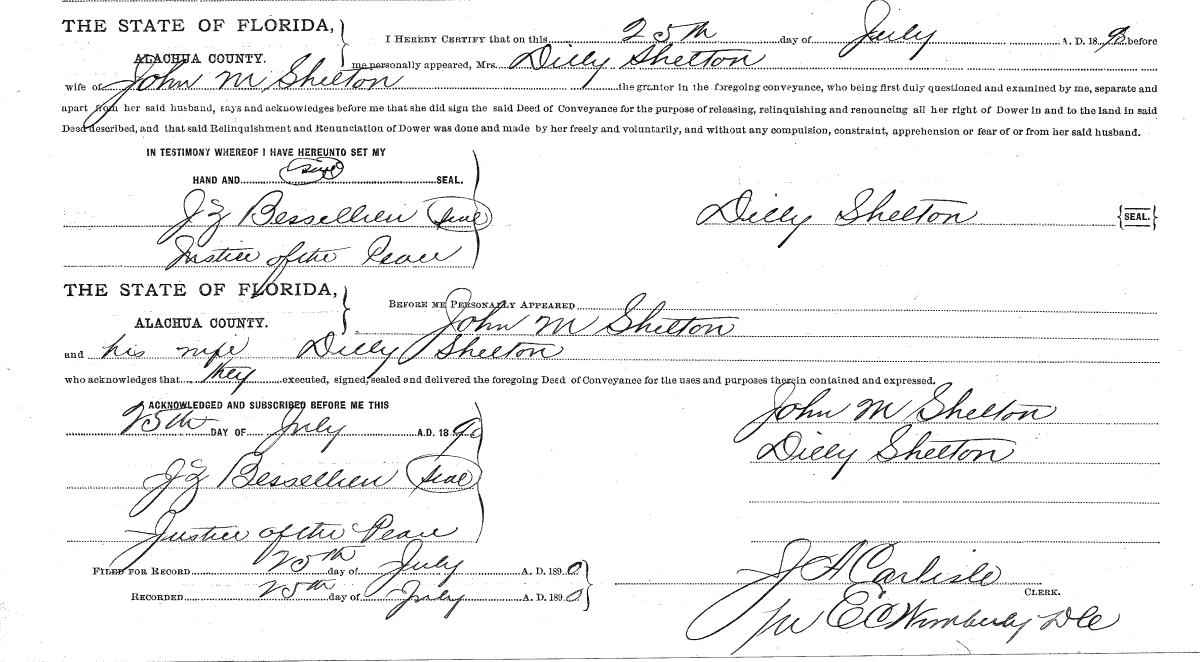 THE STATE OF FLORIDA,
ALACHUA COUNTY.
I HEREBY CERTIFY that on this 25th day of July A. D. 1890 before
me personally appeared, Mrs. Dilly Shelton
wife of John M Shelton the grantor in the foregoing conveyance, who being first duly questioned and examined by me, separate and
apart from her said husband, says and acknowledges before me that she did sign the said Deed of Conveyance for the purpose of releasing, relinquishing and renouncing all her right of Dower in and to the land in said
Deed described, and that said Relinquishment and Renunciation of Dower was done and made by her freely and voluntarily, and without any compulsion, constraint, apprehension or fear of or from her said husband.
IN TESTIMONY WHEREOF I HAVE HEREUNTO SET MY
HAND AND seal SEAL.
J Z Bessellieu (seal)
Justice of the Peace
Dilly Shelton {SEAL.}
THE STATE OF FLORIDA,
ALACHUA COUNTY.
BEFORE ME PERSONALLY APPEARED
John M Shelton
and his wife Dilly Shelton
who acknowledges that they executed, signed, sealed and delivered the foregoing Deed of Conveyance for the uses and purposes therein contained and expressed.
ACKNOWLEDGED AND SUBSCRIBED BEFORE ME THIS
25th DAY OF July A.D. 1890
J Z Bessellieu (seal)
Justice of the Peace
John M Shelton
Dilly Shelton
FILED FOR RECORD 25th day of July A. D. 1890
RECORDED 25th day of July A. D. 1890
J A Carlisle
CLERK.
E C Wimberly DC